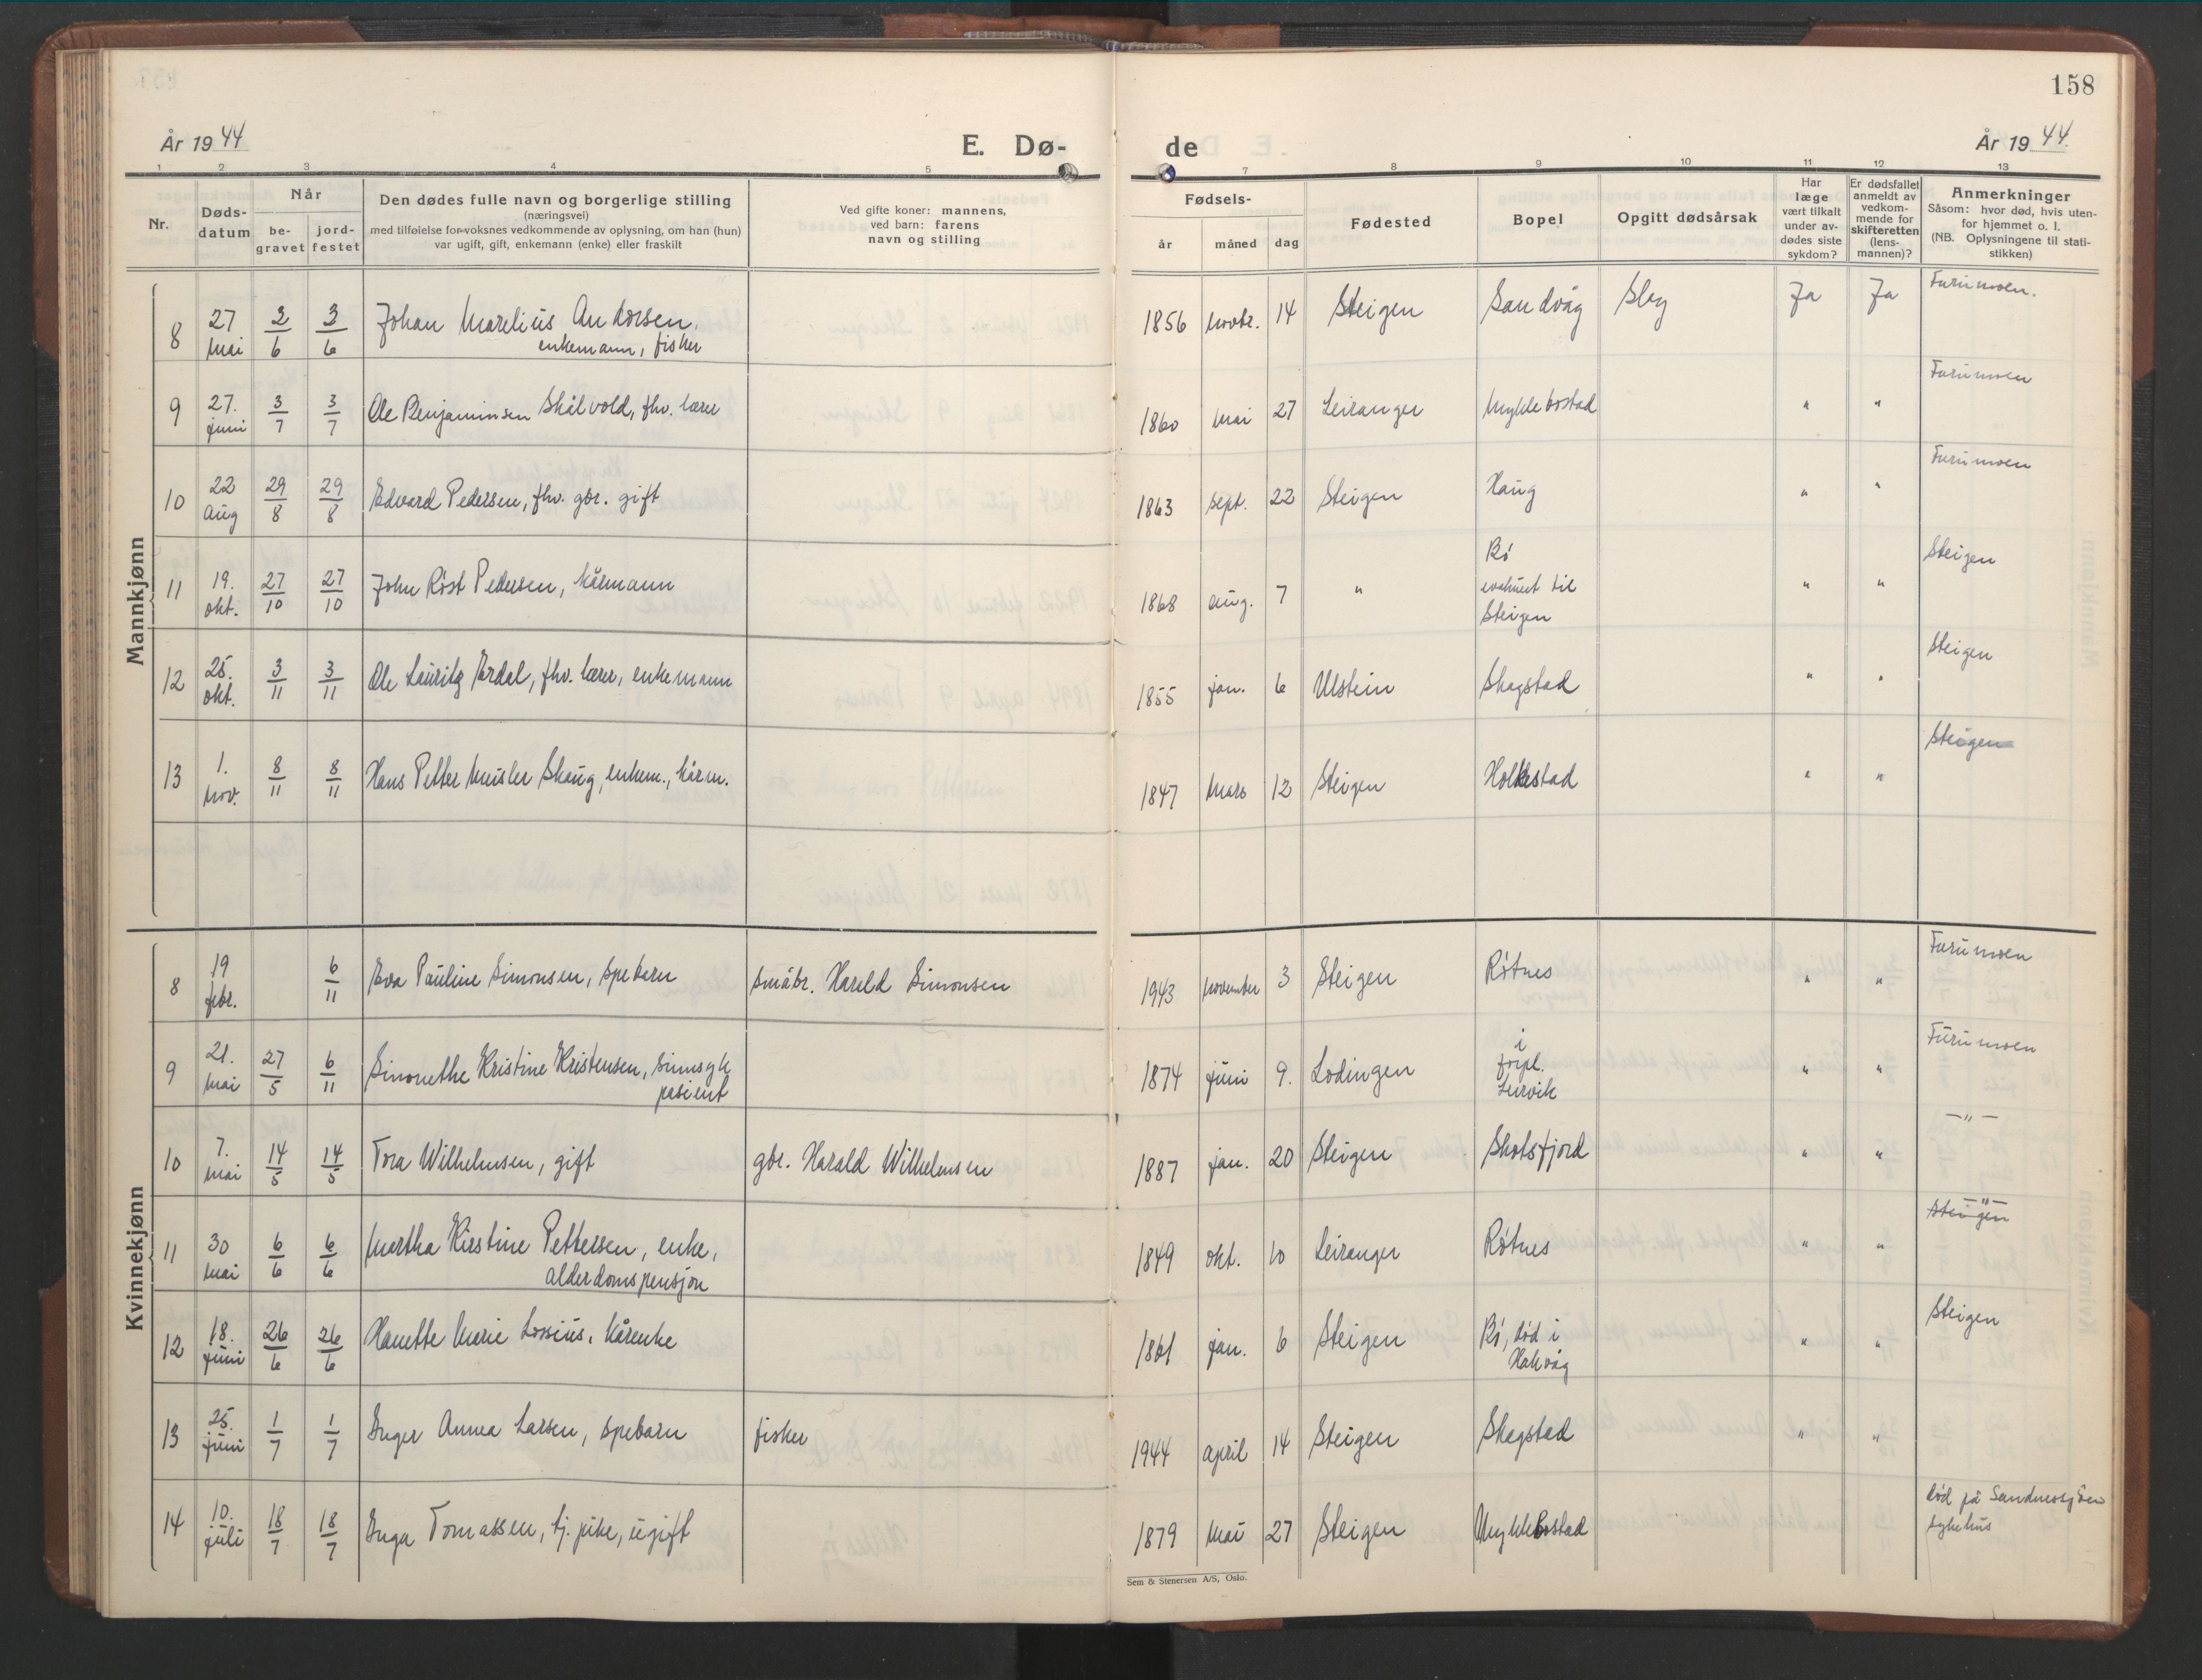 158
År 1944
E. Dø-
de
År 1944.
1 2 3 4 5 7 8 9 10 11 12 13
Nr.
Døds-
datum
Når
be-
gravet
jord-
festet
Den dødes fulle navn og borgerlige stilling
(næringsvei)
med tilføielse for voksnes vedkommende av oplysning, om han (hun)
var ugift, gift, enkemann (enke) eller fraskilt
Ved gifte koner: mannens,
ved barn: farens
navn og stilling
Fødsels-
år
måned
dag
Fødested
Bopel
Opgitt dødsårsak
Har
læge
vært tilkalt
under av-
dødes siste
sykdom?
Er dødsfallet
anmeldt av
vedkom-
mende for
skifteretten
(lens-
mannen)?
Anmerkninger
Såsom: hvor død, hvis uten-
for hjemmet o. l.
(NB. Oplysningene til stati-
stikken)
Mannkjønn
8 27 mai 2/6 3/6 Johan Marelius Andorsen, 1856 novbr. 14 Steigen Sandvåg Slag Ja Ja Furumoen.
enkemann, fisker
9 27. juni 3/7 3/7 Ole Benjaminsen Skålvold, fhv. lærer 1860 mai 27 Leiranger Myklebostad " " Furumoen
10 22 aug 29/8 29/8 Edvard Pedersen, fhv. gbr. gift 1863 sept. 22 Steigen Haug " " Furumoen
11 19. okt. 27/10 27/10 John Røst Pedersen, kårmann 1868 aug. 7 " Bø " " Steigen
evakuert til
Steigen
12 25. okt. 3/11 3/11 Ole Lauritz Ardal, fhv. lærer, enkemann 1855 jan. 6 Ulstein Skagstad " " Steigen
13 1. nov. 8/11 8/11 Hans Petter Meisler Skaug, enkem., kårm. 1847 mars 12 Steigen Holkestad " " Steigen
Kvinnekjønn
8 19 febr. 6/11 Eva Pauline Simonsen, spebarn småbr. Harald Simonsen 1943 november 3 Steigen Røtnes " " Furumoen
9 21. mai 27/5 6/11 Simonethe Kristine Kristensen, sinnsyk 1874 juni 9. Lødingen i " " Furumoen
pasient forpl.
Leirvik
10 7. mai 14/5 14/5 Tora Wilhelmsen, gift gbr. Harald Wilhelmsen 1887 jan. 20 Steigen Skotsfjord " " —"—
11 30 mai 6/6 6/6 Martha Kirstine Pettersen, enke, 1849 okt. 10 Leiranger Røtnes " " —"— Steigen
alderdomspensjon
12 18. juni 26/6 26/6 Hanette Marie Lossius, kårenke 1861 jan. 6 Steigen Bø, død i " " Steigen
Hakvåg
13 25. juni 1/7 1/7 Inger Annea Larsen, spebarn fisker 1944 april 14 Steigen Skagstad " "
14 10. juli 18/7 18/7 Inga Tomassen, tj. pike, ugift 1879 mai 27 Steigen Myklebostad død på Sandnessjøen
sykehus
Sem & Stenersen A/S, Oslo.